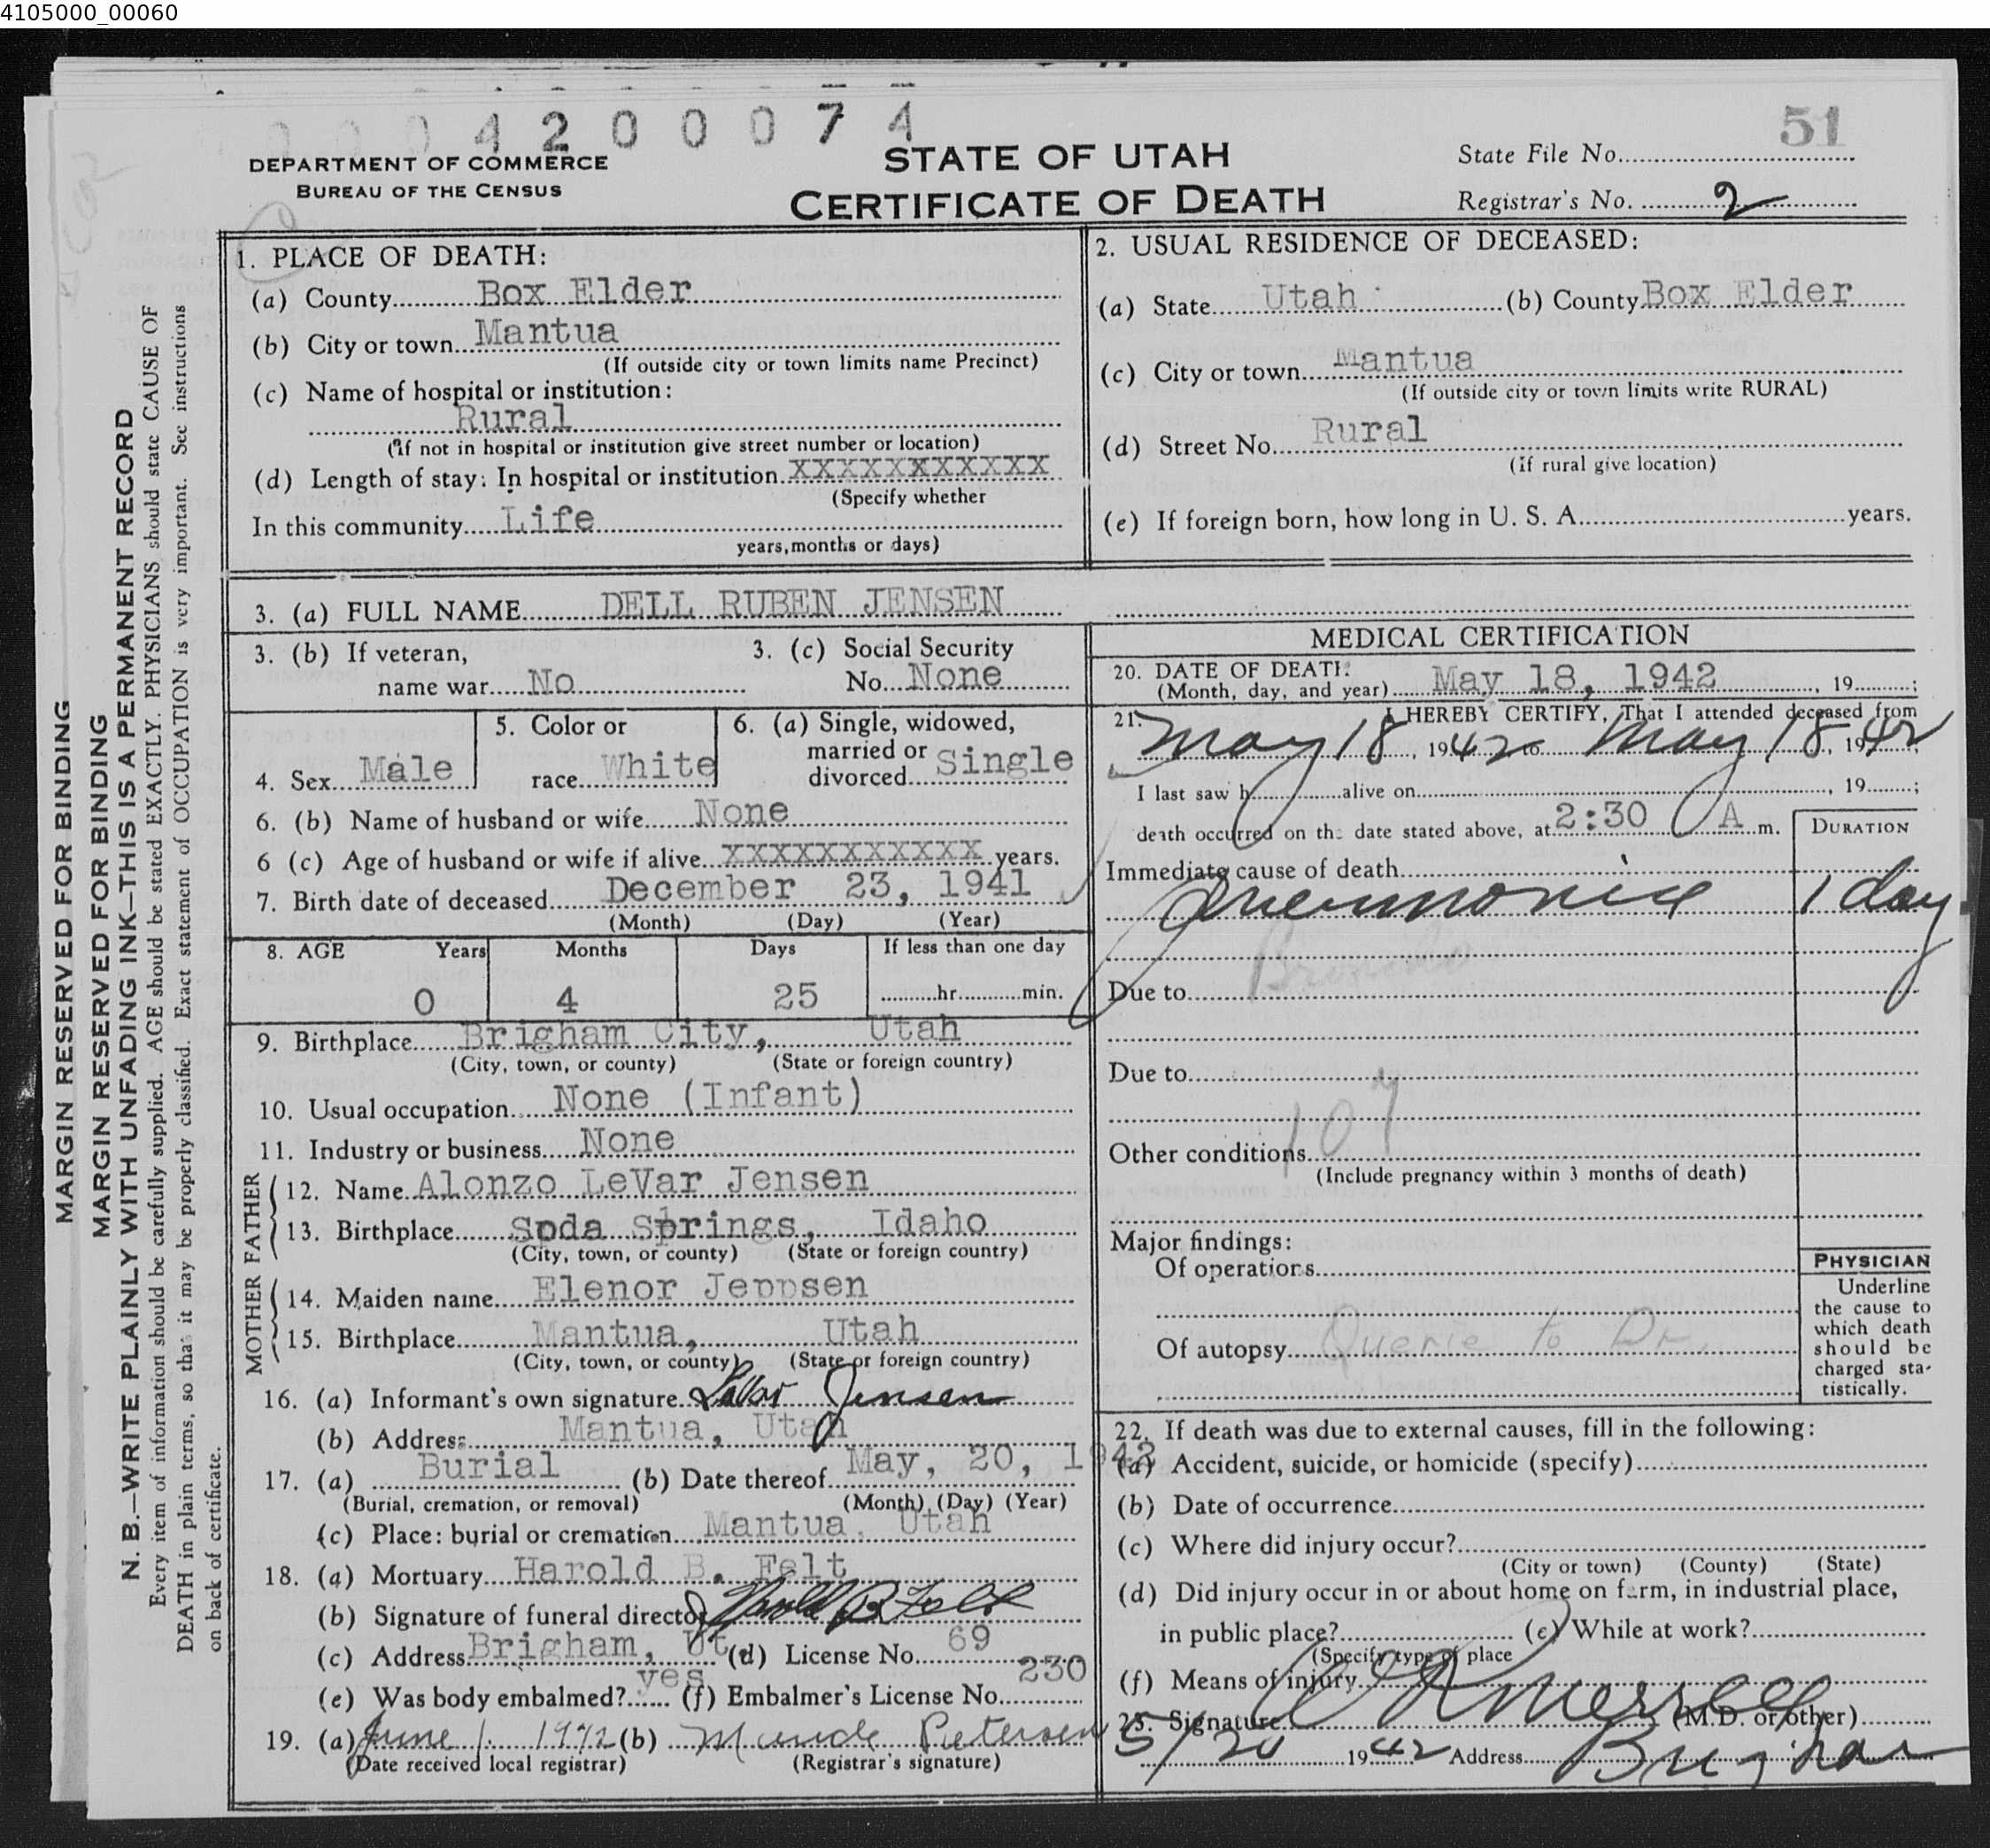 4105000_00060
4 2 0 0 0 7 4
51
DEPARTMENT OF COMMERCE
BUREAU OF THE CENSUS
STATE OF UTAH
CERTIFICATE OF DEATH
State File No.
Registrar's No. 2
MARGIN RESERVED FOR BINDING
MARGIN RESERVED FOR BINDING
N. B.—WRITE PLAINLY WITH UNFADING INK—THIS IS A PERMANENT RECORD
Every item of information should be carefully supplied. AGE should be stated EXACTLY. PHYSICIANS should state CAUSE OF
DEATH in plain terms, so that it may be properly classified. Exact statement of OCCUPATION is very important. See instructions
on back of certificate.
1. PLACE OF DEATH:
(a) County Box Elder
(b) City or town Mantua
(If outside city or town limits name Precinct)
(c) Name of hospital or institution:
Rural
(If not in hospital or institution give street number or location)
(d) Length of stay: In hospital or institution XXXXXXXXXXX
(Specify whether
In this community Life
years, months or days)
2. USUAL RESIDENCE OF DECEASED:
(a) State Utah (b) County Box Elder
(c) City or town Mantua
(If outside city or town limits write RURAL)
(d) Street No. Rural
(If rural give location)
(e) If foreign born, how long in U. S. A. years.
3. (a) FULL NAME DELL RUBEN JENSEN
3. (b) If veteran,
name war No
3. (c) Social Security
No. None
4. Sex Male
5. Color or
race White
6. (a) Single, widowed,
married or
divorced Single
6. (b) Name of husband or wife None
6 (c) Age of husband or wife if alive XXXXXXXXXXX years.
7. Birth date of deceased December 23, 1941
(Month) (Day) (Year)
8. AGE Years Months Days If less than one day
0 4 25 hr. min.
9. Birthplace Brigham City, Utah
(City, town, or county) (State or foreign country)
10. Usual occupation None (Infant)
11. Industry or business None
FATHER
12. Name Alonzo LeVar Jensen
13. Birthplace Soda Springs, Idaho
(City, town, or county) (State or foreign country)
MOTHER
14. Maiden name Elenor Jeppsen
15. Birthplace Mantua, Utah
(City, town, or county) (State or foreign country)
16. (a) Informant's own signature LaVar Jensen
(b) Address Mantua, Utah
17. (a) Burial (b) Date thereof May, 20, 1942
(Burial, cremation, or removal) (Month) (Day) (Year)
(c) Place: burial or cremation Mantua, Utah
18. (a) Mortuary Harold B. Felt
(b) Signature of funeral director Harold B Felt
(c) Address Brigham, Ut (d) License No. 69
(e) Was body embalmed? yes (f) Embalmer's License No. 230
19. (a) June 1. 1942 (b) Maude Petersen
(Date received local registrar) (Registrar's signature)
MEDICAL CERTIFICATION
20. DATE OF DEATH:
(Month, day, and year) May 18, 1942, 19 ;
21. I HEREBY CERTIFY, That I attended deceased from
May 18, 1942 to May 18, 1942
I last saw h alive on , 19 ;
death occurred on the date stated above, at 2:30 A m.
DURATION
Immediate cause of death
Pneumonia 1 day
Broncho
Due to
Due to
107
Other conditions
(Include pregnancy within 3 months of death)
Major findings:
Of operations
Of autopsy Querie to Dr.
PHYSICIAN
Underline
the cause to
which death
should be
charged sta-
tistically.
22. If death was due to external causes, fill in the following:
(a) Accident, suicide, or homicide (specify)
(b) Date of occurrence
(c) Where did injury occur?
(City or town) (County) (State)
(d) Did injury occur in or about home on farm, in industrial place,
in public place? (e) While at work?
(Specify type of place
(f) Means of injury
23. Signature (M.D. or other)
5/20 1942 Address Brigham